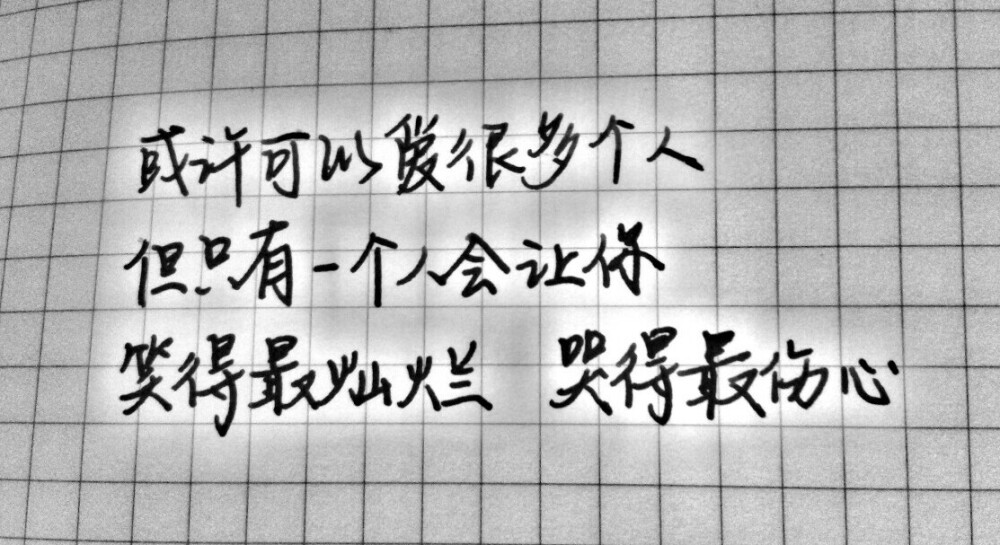 或许可以爱很多个人
但只有一个人会让你
笑得最灿烂 哭得最伤心